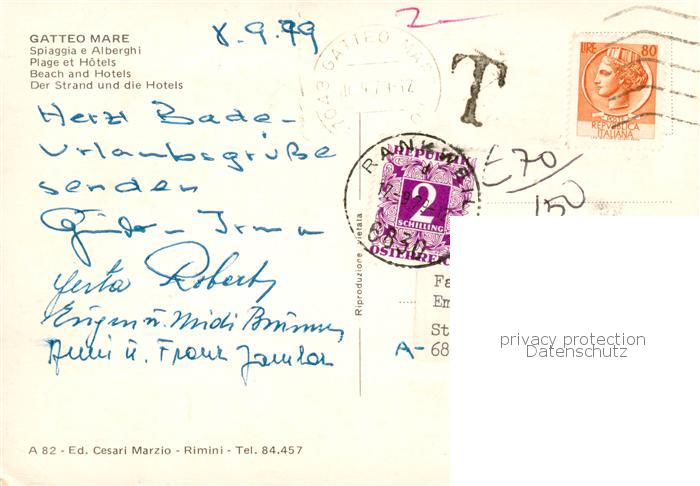 GATTEO MARE
Spiaggia e Alberghi
Plage et Hôtels
Beach and Hotels
Der Strand und die Hotels
8.9.79
GATTEO MAR
LIRE 80
REPUBBLICA
ITALIANA
T
Herzl Bade-
Urlaubsgrüße
senden
Günter - Irma
Robert
Eugen u. Midi
Anni u. Franz
RANKWEIL
6830
REPUBLIK
2
SCHILLING
ÖSTERREICH
70
150
Riproduzione vietata
Fa
Em
St
A- 68
privacy protection
Datenschutz
A 82 - Ed. Cesari Marzio - Rimini - Tel. 84.457